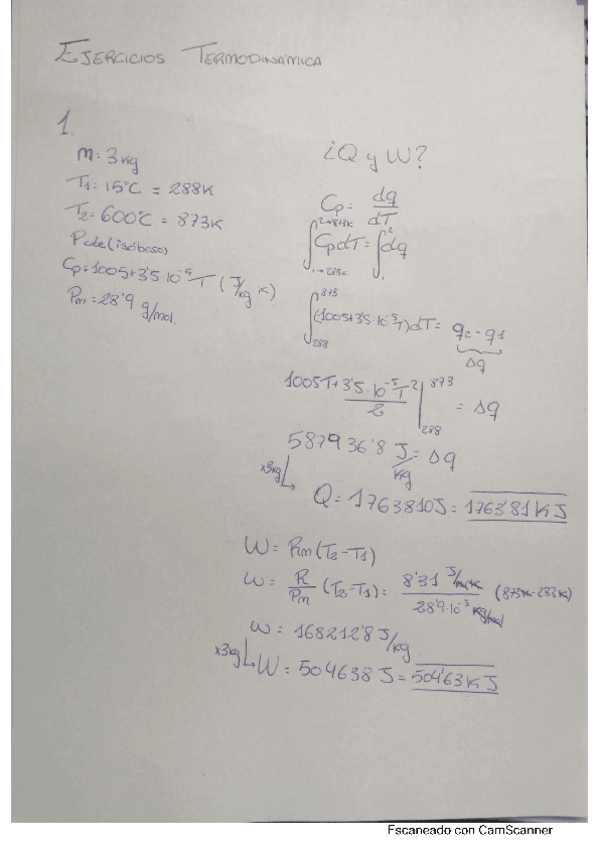 EJERCICIOS TERMODINÁMICA
1.
m = 3 kg
T1 = 15°C = 288K
T2 = 600°C = 873K
P cte (isóbaro)
Cp = 1005 + 3'5·10^-5 T (J/kg K)
Pm = 28'9 g/mol.
¿Q y W?
Cp = dq/dT
∫_{1→288K}^{2→873K} Cp dT = ∫_1^2 dq
∫_{288}^{873} (1005 + 3'5·10^-5 T) dT = q2 - q1
Δq
1005T + 3'5·10^-5 T^2 / 2 |_{288}^{873} = Δq
587936'8 J/kg = Δq
x3kg
Q = 1763810 J = 1763'81 KJ
W = Rm (T2 - T1)
W = R/Pm (T2 - T1) = 8'31 J/mol K / 28'9·10^-3 kg/mol (873K - 288K)
W = 168212'8 J/kg
x3kg
W = 504638 J = 504'63 KJ
Escaneado con CamScanner